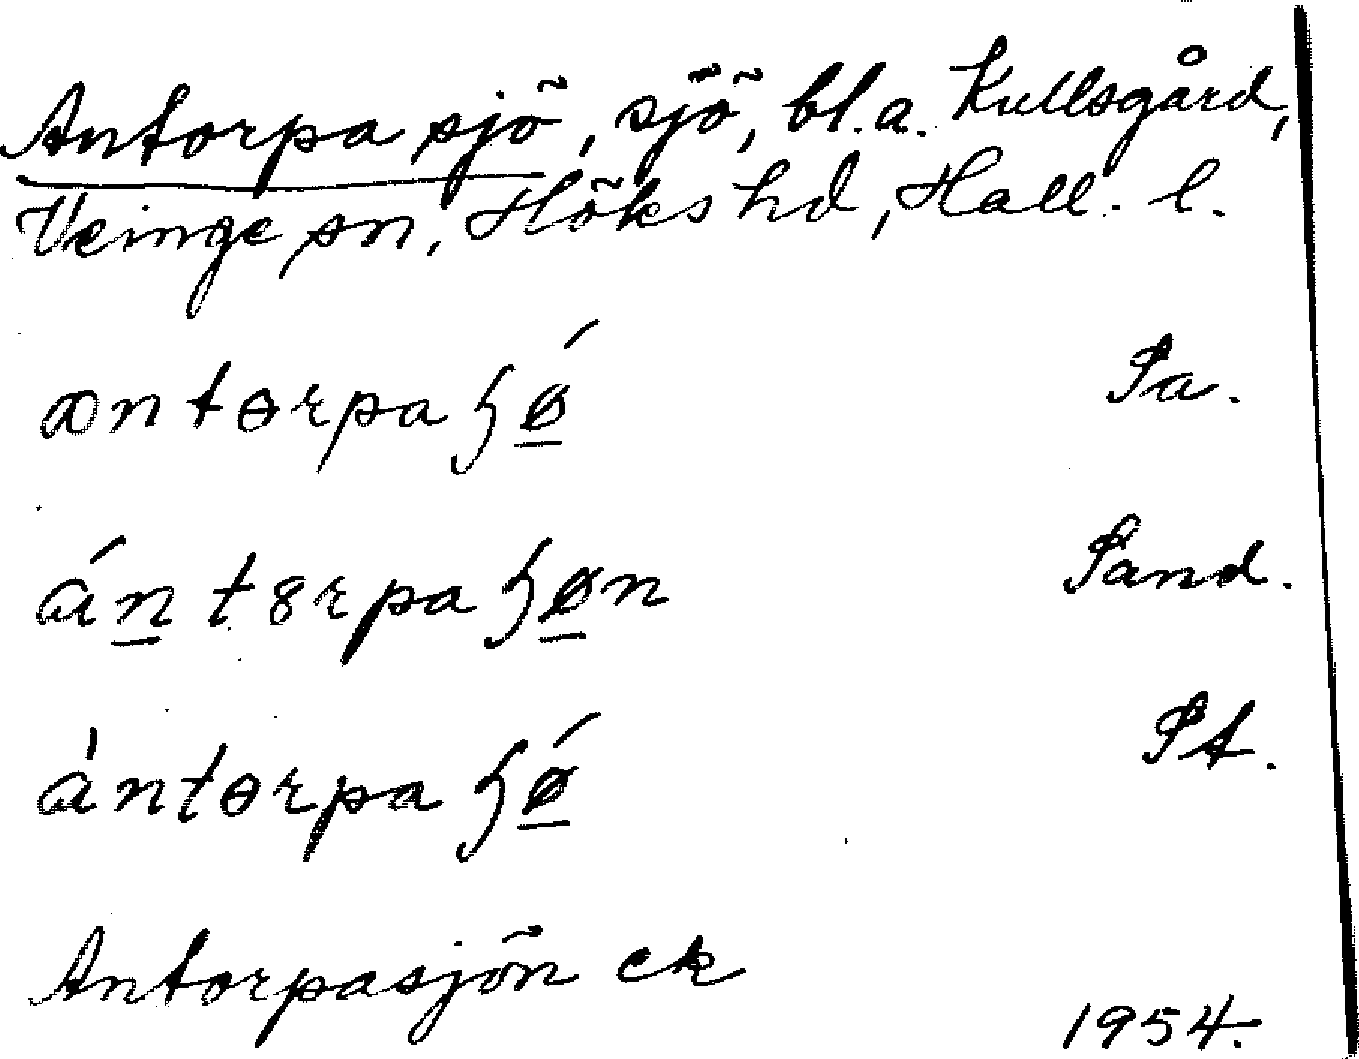 Antorpa sjö, sjö, bl.a. Kullsgård,
Veinge sn, Höks hd, Hall. l.
antɵrpa ɧǿ Sa.
ántɵrpa ɧøn Sand.
àntɵrpa ɧǿ St.
Antorpasjön ek
1954.